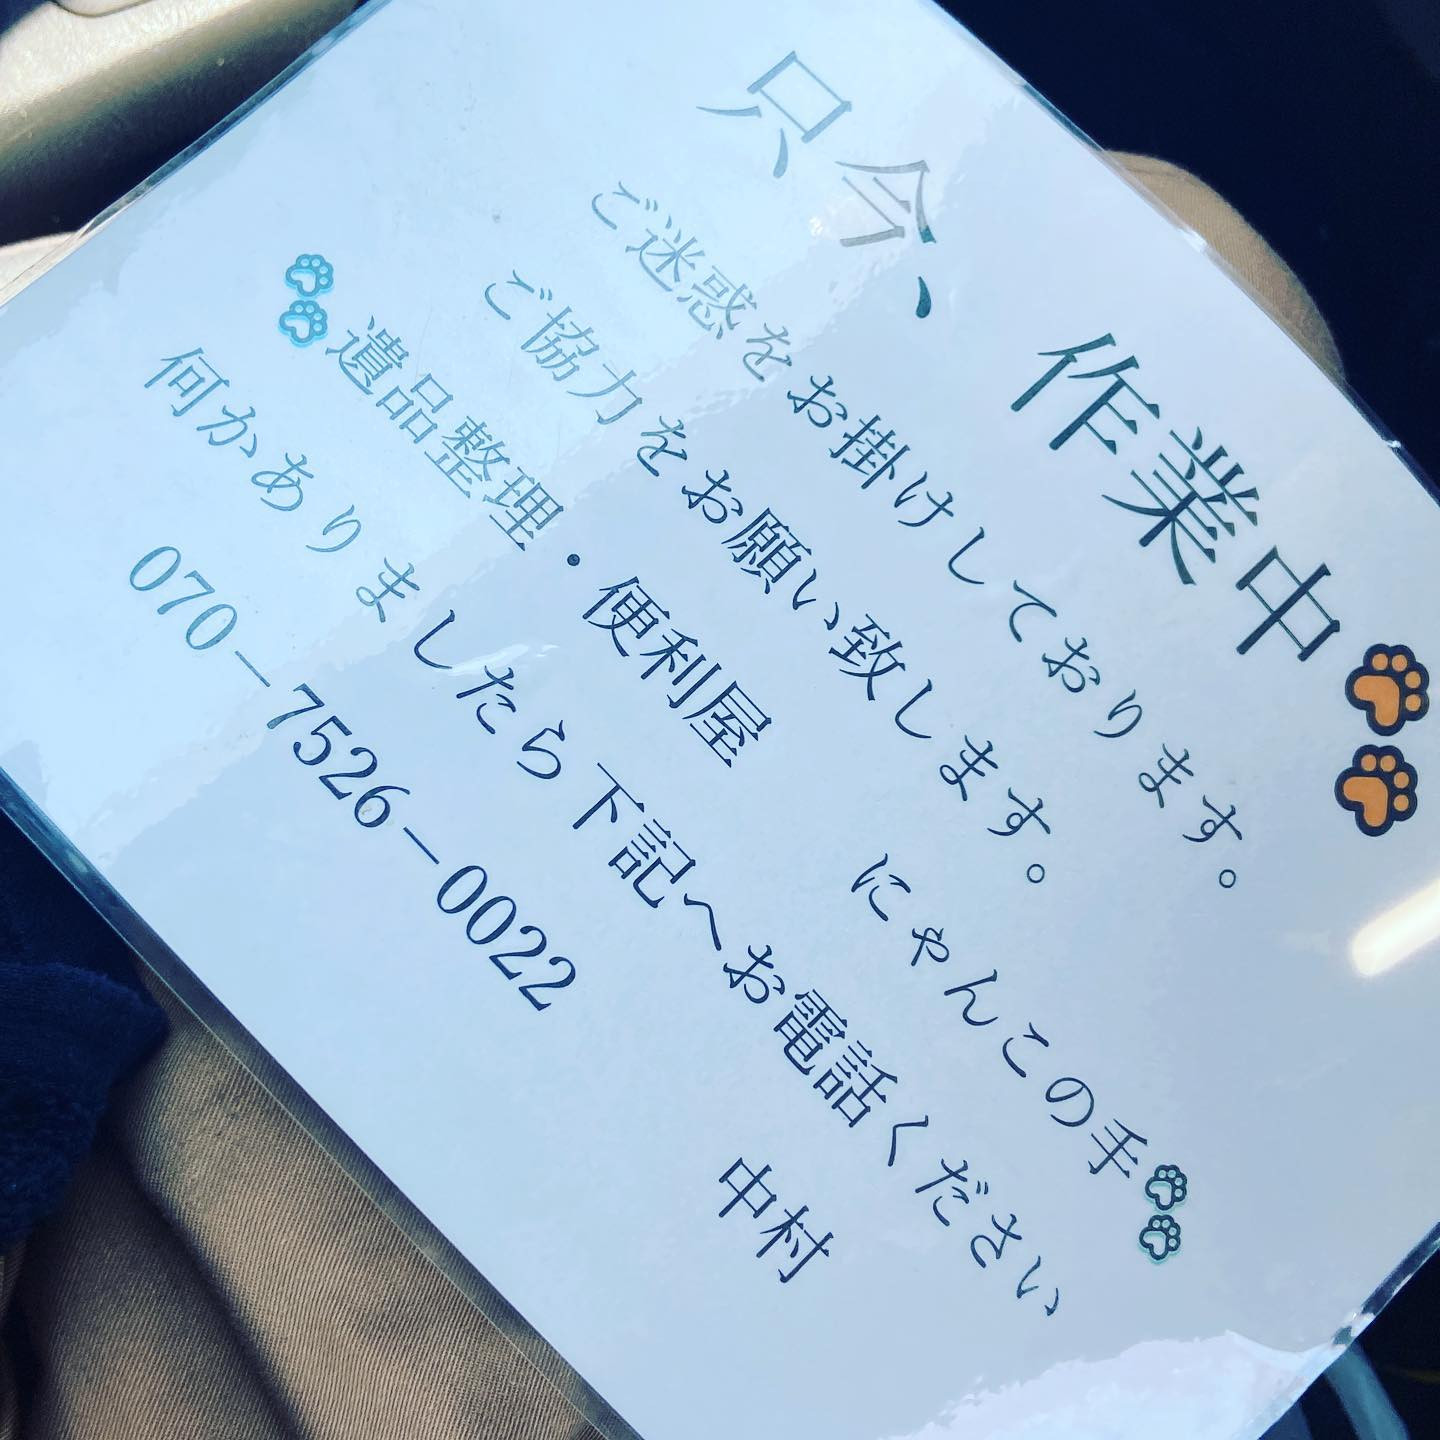 只今、作業中
ご迷惑をお掛けしております。
ご協力をお願い致します。
遺品整理・便利屋 にゃんこの手
何かありましたら下記へお電話ください
070-7526-0022 中村